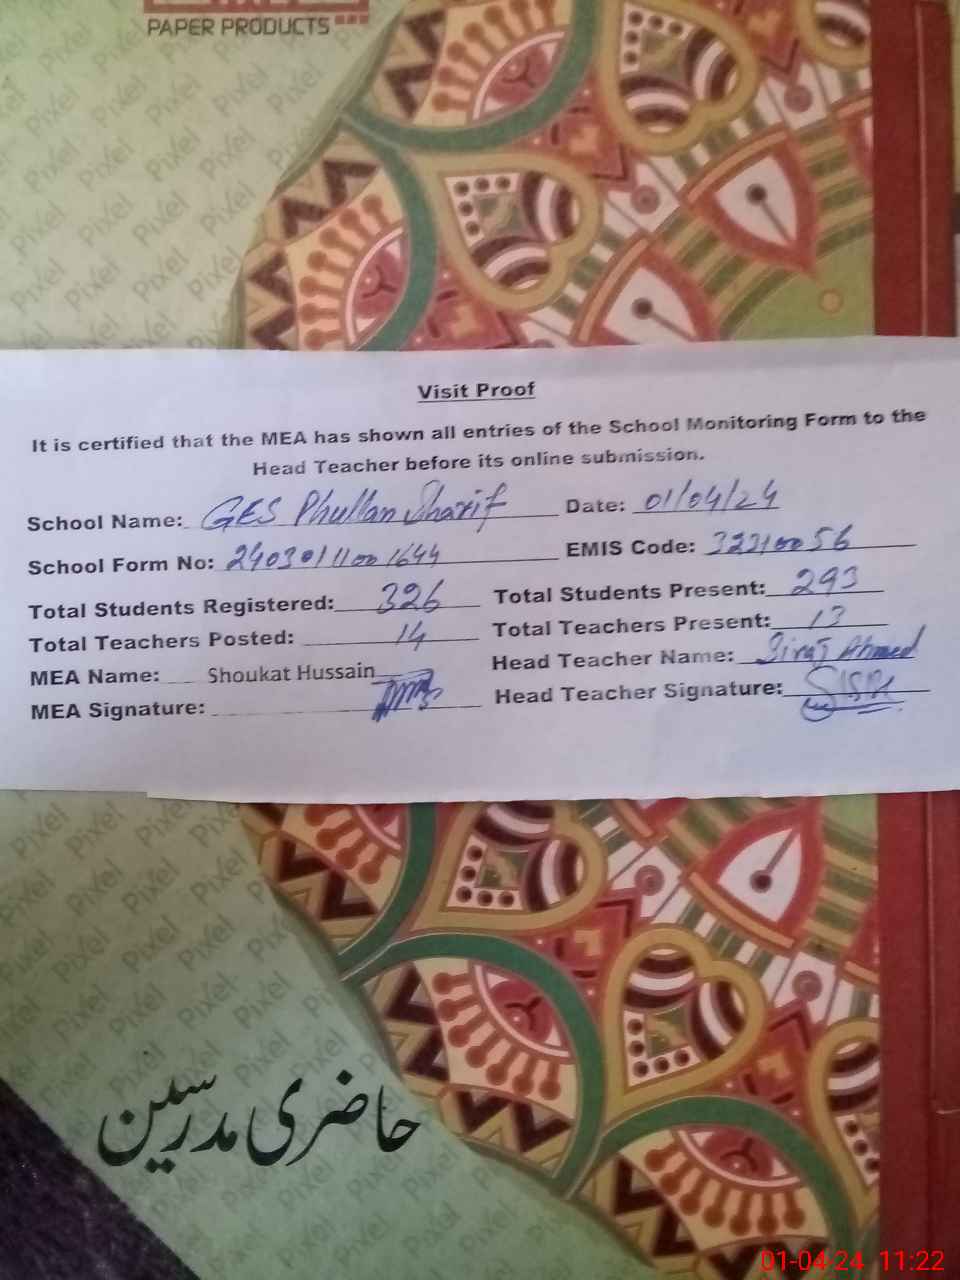 PAPER PRODUCTS
Visit Proof
It is certified that the MEA has shown all entries of the School Monitoring Form to the
Head Teacher before its online submission.
School Name: GES Phullan Sharif Date: 01/04/24
School Form No: 2403011001644 EMIS Code: 32210056
Total Students Registered: 326 Total Students Present: 293
Total Teachers Posted: 14 Total Teachers Present: 13
MEA Name: Shoukat Hussain Head Teacher Name: Siraj Ahmed
MEA Signature: Head Teacher Signature:
Pixel
حاضری مدرسین
01-04-24 11:22